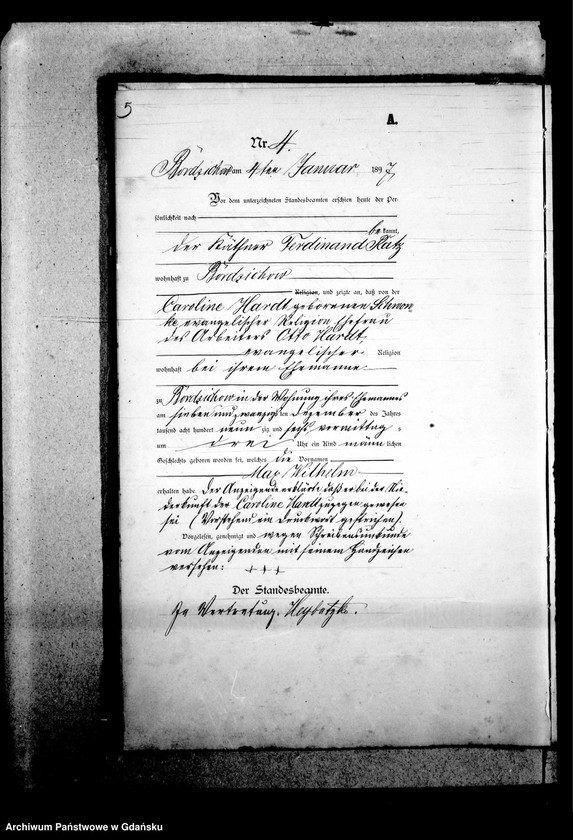 5
A.
Nr. 4.
Bordzichow am 4ten Januar 1897
Vor dem unterzeichneten Standesbeamten erschien heute der Per-
sönlichkeit nach
be kannt,
der Käthner Ferdinand
wohnhaft zu Bordzichow
Religion, und zeigte an, daß von der
Caroline Hardt geborenen
evangelischer Religion Ehefrau
des Arbeiters Otto Hardt,
evangelischer Religion
wohnhaft bei ihrem Ehemanne
zu Bordzichow in der Wohnung ihres Ehemannes
am sieben und zwanzigsten Dezember des Jahres
tausend acht hundert neun zig und sechs vormittag s
um drei Uhr ein Kind männ lichen
Geschlechts geboren worden sei, welches die Vornamen
Max Wilhelm
erhalten habe. Der Anzeigende erklärte, daß er bei der Nie-
derkunft der Caroline Hardt zugegen gewesen
sei (Vorstehend ein Druckwort gestrichen).
Vorgelesen, genehmigt und wegen Schreibensunkunde
vom Anzeigenden mit seinem Handzeichen
versehen: +++
Der Standesbeamte.
In Vertretung.
Archiwum Państwowe w Gdańsku